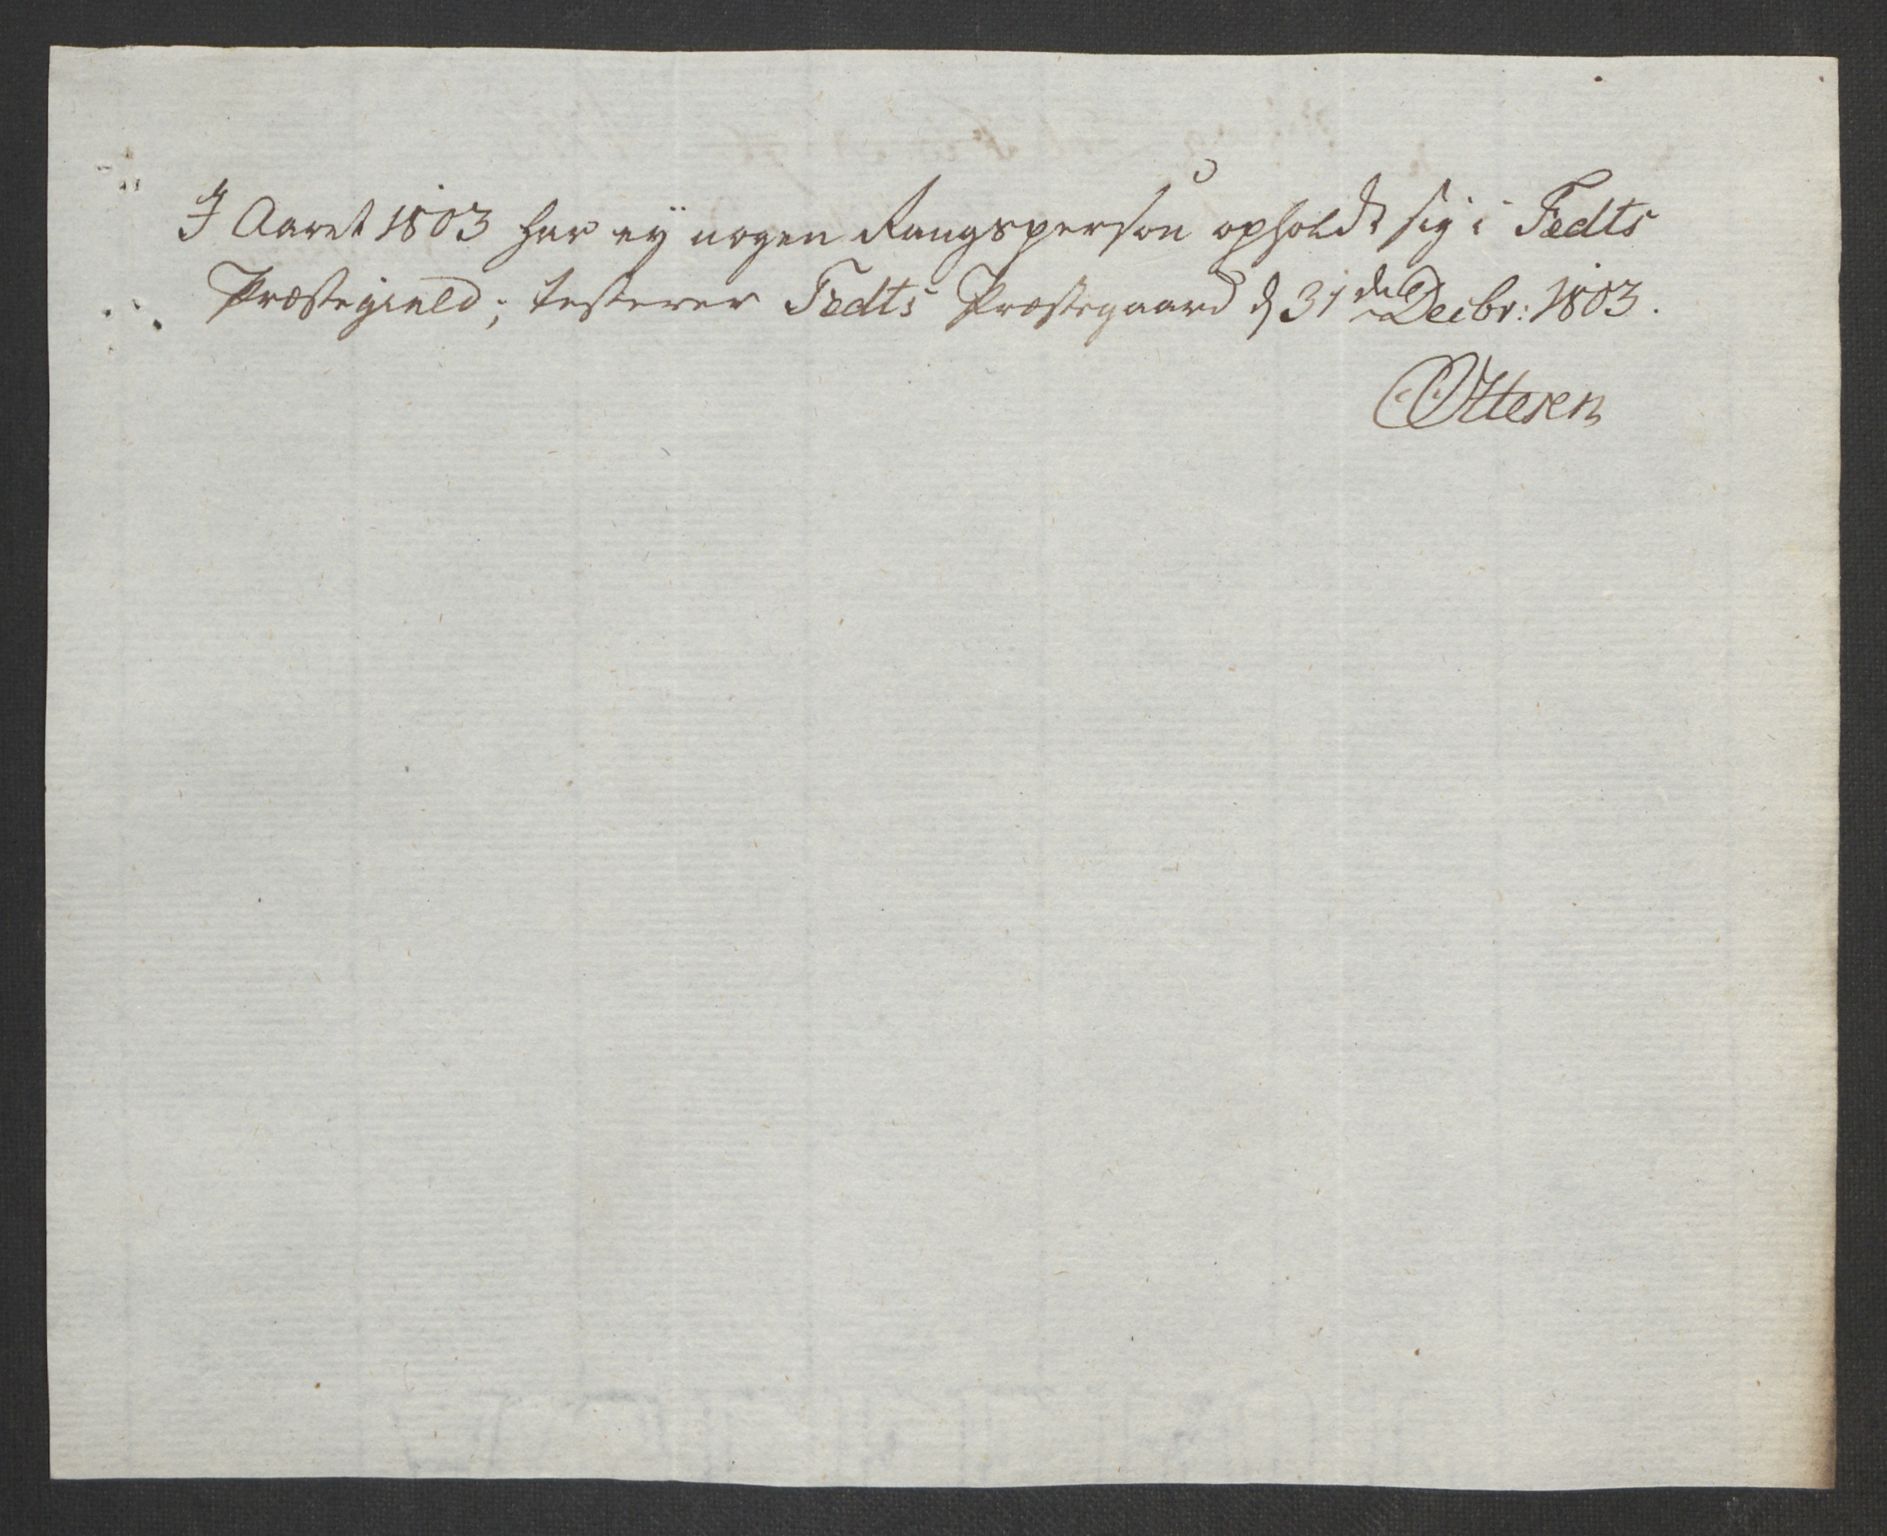 I Aaret 1803 har ey nogen Rangsperson opholdt sig i Tædts
Præstegield; testerer Tædts Præstegaard d 31 de Decbr: 1803.
Ottesen